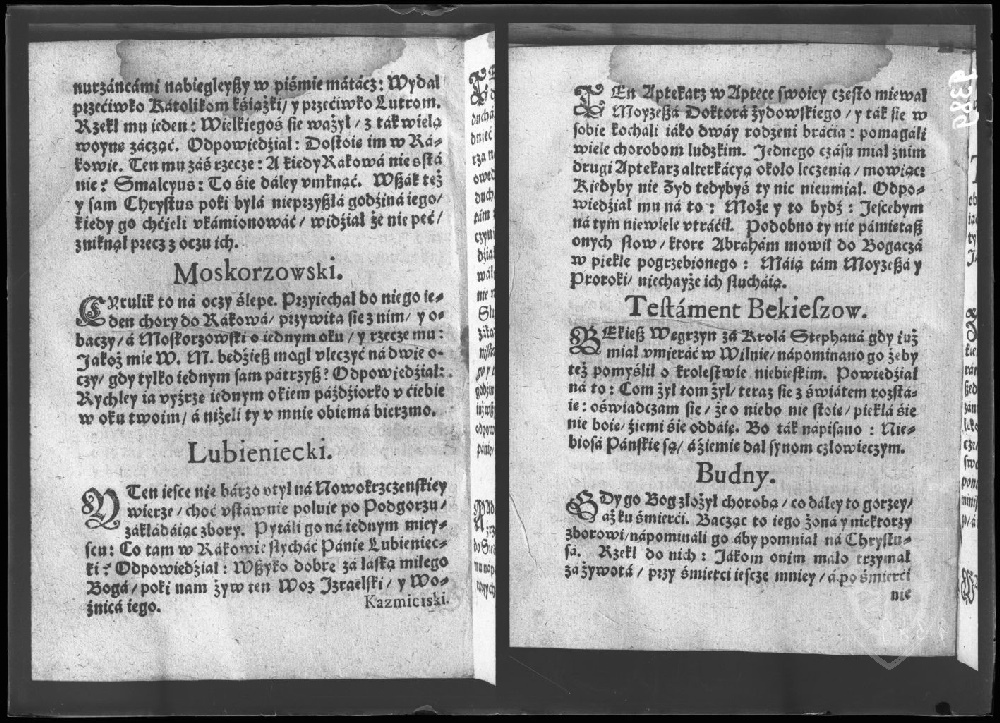 nurzáncámi nabiegleyßy w piśmie mátácz: Wydał
przećiwko Kátolikom kśiążki/ y przećiwko Lutrom.
Rzekł mu ieden: Wielkiegoś sie ważył/ z ták wielą
woynę záczáć. Odpowiedźiał: Dostoię im w Rá-
kowie. Ten mu záś rzecze: A kiedy Rakowá nie sstá
nie? Smalcyus: To śie dáley vmknąć. Wßák też
y sam Chrystus poki byłá nieprzyßłá godźiná iego/
kiedy go chćieli vkámionowáć/ widźiał że nie peć/
zniknął precz z oczu ich.
Moskorzowski.
Cyrulik to ná oczy ślepe. Przyiechał do niego ie-
den chory do Rákowá/ przywita sie z nim/ y o-
baczy/ á Moskorzowski o iednym oku/ y rzecze mu:
Jákoż mie W. M. będźieß mogł vleczyć ná dwie o-
czy/ gdy tylko iednym sam pátrzyß? Odpowiedźiał:
Rychley ia vyźrze iednym okiem páźdźiorko v ćiebie
w oku twoim/ á niżeli ty v mnie obiemá bierzmo.
Lubieniecki.
Ten iesce nie bárzo vtył ná Nowokrzczenskiey
wierze/ choć vstáwnie poluie po Podgorzu/
zákłádáiąc zbory. Pytáli go ná iednym miey-
scu: Co tam w Rákowie słycháć Pánie Lubieniec-
ki? Odpowiedźiał: Wßyko dobre zá łáską miłego
Bogá/ poki nam żyw ten Woz Izráelski/ y Wo-
źnicá iego.
Kazmierski.
TEn Aptekarz w Aptece swoiey często miewał
Moyzeßá Doktorá żydowskiego/ y ták sie w
sobie kocháli iáko dway rodzeni bráćia: pomagáli
wiele chorobom ludzkim. Jednego czásu miał z nim
drugi Aptekarz álterkácyą około leczenia/ mowiąc:
Kiedyby nie Żyd tedybyś ty nic nieumiał. Odpo-
wiedźiał mu ná to: Może y to bydź: Jescebym
ná tym niewiele vtráćił. Podobno ty nie pámiętaß
onych słow/ ktore Abráhám mowił do Bogaczá
w piekle pogrzebionego: Máią tám Moyzeßá y
Proroki/ niechayże ich słucháią.
Testáment Bekieszow.
BEkieß Węgrzyn zá Krolá Stephaná gdy iuż
miał vmieráć w Wilnie/ nápominano go żeby
też pomyślił o krolestwie niebieskim. Powiedźiał
ná to: Com żył tom żył/ teraz sie z świátem rozstá-
ie: oświadczam sie/ że o niebo nie stoię/ piekłá śie
nie boię/ źiemi śie oddáię. Bo ták nápisano: Nie-
biosá Páńskie są/ á źiemię dał synom człowieczym.
Budny.
GDy go Bog złożył chorobą/ co dáley to gorzey/
áż ku śmierći. Bacząc to iego żoná y niektorzy
zborowi/ nápomináli go áby pomniał ná Chrystu-
sá. Rzekł do nich: Jákom onim máło trzymał
zá żywotá/ przy śmierći iescze mniey/ á po śmierći
nie